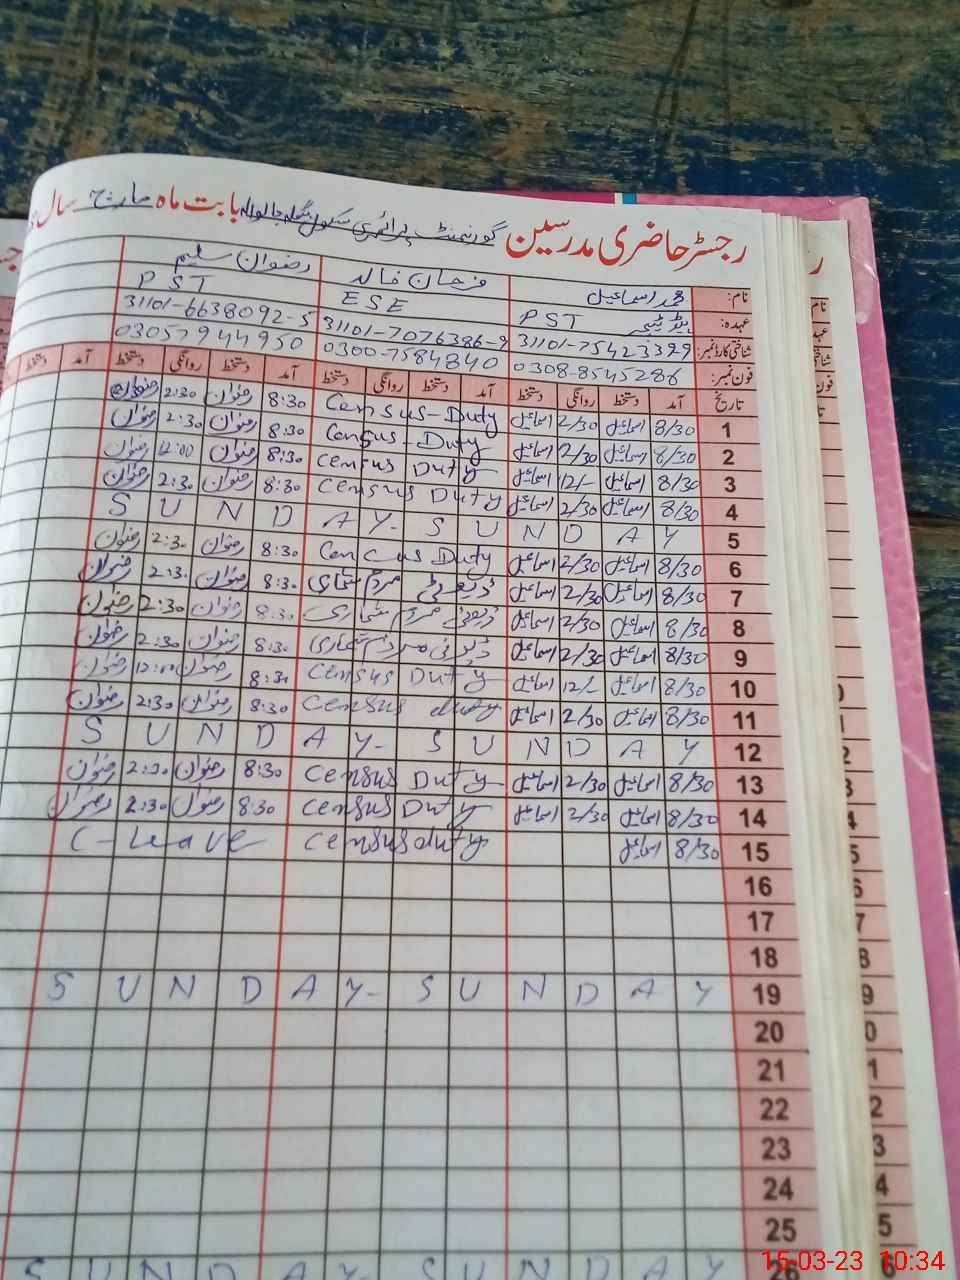 رجسٹر حاضری مدرسین گورنمنٹ پرائمری سکول بابت ماہ مارچ سال
نام: محمد اسماعیل فرحان خالد رضوان سلیم
عہدہ: PST ESE PST
شناختی کارڈ نمبر: 31101-7076386-9 31101-6638092-5
فون نمبر: 0308-8545286 0300-7584840 03057944950
تاریخ آمد دستخط روانگی دستخط آمد دستخط روانگی دستخط آمد دستخط روانگی دستخط آمد
1 8/30 اسماعیل 2/30 اسماعیل Census-Duty 8:30 رضوان 2:30 رضوان
2 8/30 اسماعیل 2/30 اسماعیل Census-Duty 8:30 رضوان 2:30 رضوان
3 8/30 اسماعیل 12/- اسماعیل Census Duty 8:30 رضوان 12:00 رضوان
4 8/30 اسماعیل 2/30 اسماعیل Census Duty 8:30 رضوان 2:30 رضوان
5 SUNDAY-SUNDAY
6 8/30 اسماعیل 2/30 اسماعیل Cencus Duty 8:30 رضوان 2:30 رضوان
7 8/30 اسماعیل 2/30 اسماعیل ڈیوٹی مردم شماری 8:30 رضوان 2:30 رضوان
8 8/30 اسماعیل 2/30 اسماعیل ڈیوٹی مردم شماری 8:30 رضوان 2:30 رضوان
9 8/30 اسماعیل 2/30 اسماعیل ڈیوٹی مردم شماری 8:30 رضوان 2:30 رضوان
10 8/30 اسماعیل 12/- اسماعیل Census Duty 8:30 رضوان 12:00 رضوان
11 8/30 اسماعیل 2/30 اسماعیل Census duty 8:30 رضوان 2:30 رضوان
12 SUNDAY-SUNDAY
13 8/30 اسماعیل 2/30 اسماعیل Census Duty 8:30 رضوان 2:30 رضوان
14 8/30 اسماعیل 2/30 اسماعیل Census Duty 8:30 رضوان 2:30 رضوان
15 8/30 اسماعیل Census duty C-Leave
16
17
18
19 SUNDAY-SUNDAY
20
21
22
23
24
25
26 SUNDAY-SUNDAY
15-03-23 10:34